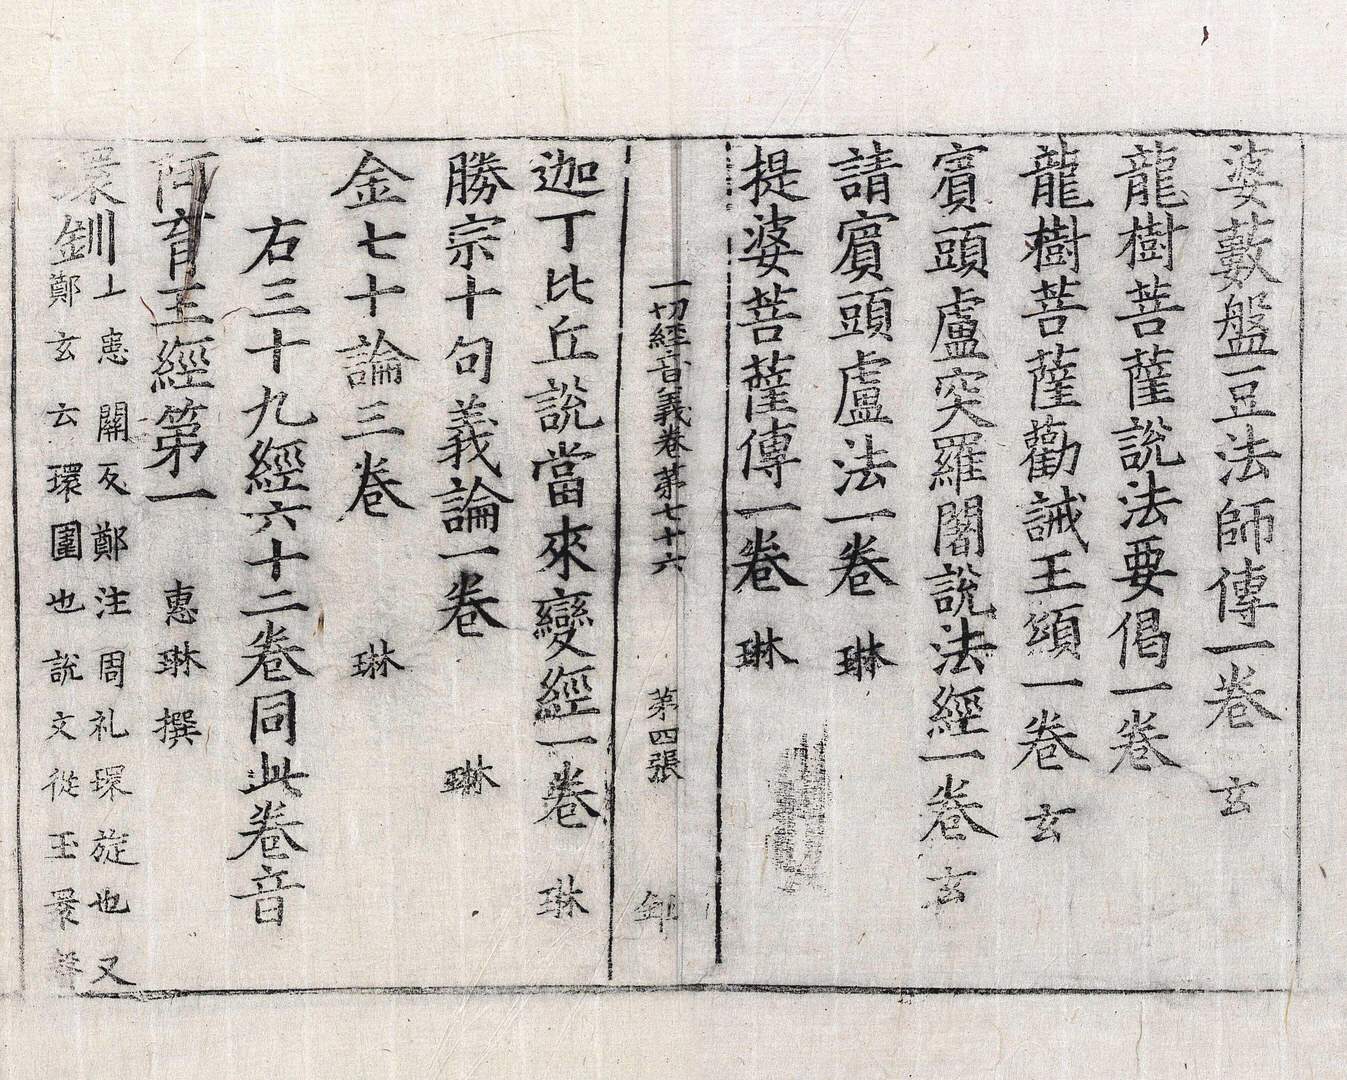 婆藪盤豆法師傳一卷 玄
龍樹菩薩說法要偈一卷
龍樹菩薩勸誡王頌一卷 玄
賓頭盧突羅闍說法經一卷 玄
請賓頭盧法一卷 琳
提婆菩薩傳一卷 琳
一切經音義卷第七十六 第四張
迦丁比丘說當來變經一卷 琳
勝宗十句義論一卷 琳
金七十論三卷 琳
右三十九經六十二卷同此卷音
阿育王經第一 惠琳撰
環釧
上患關反鄭注周礼環旋也又
鄭玄云環圍也說文從玉睘聲